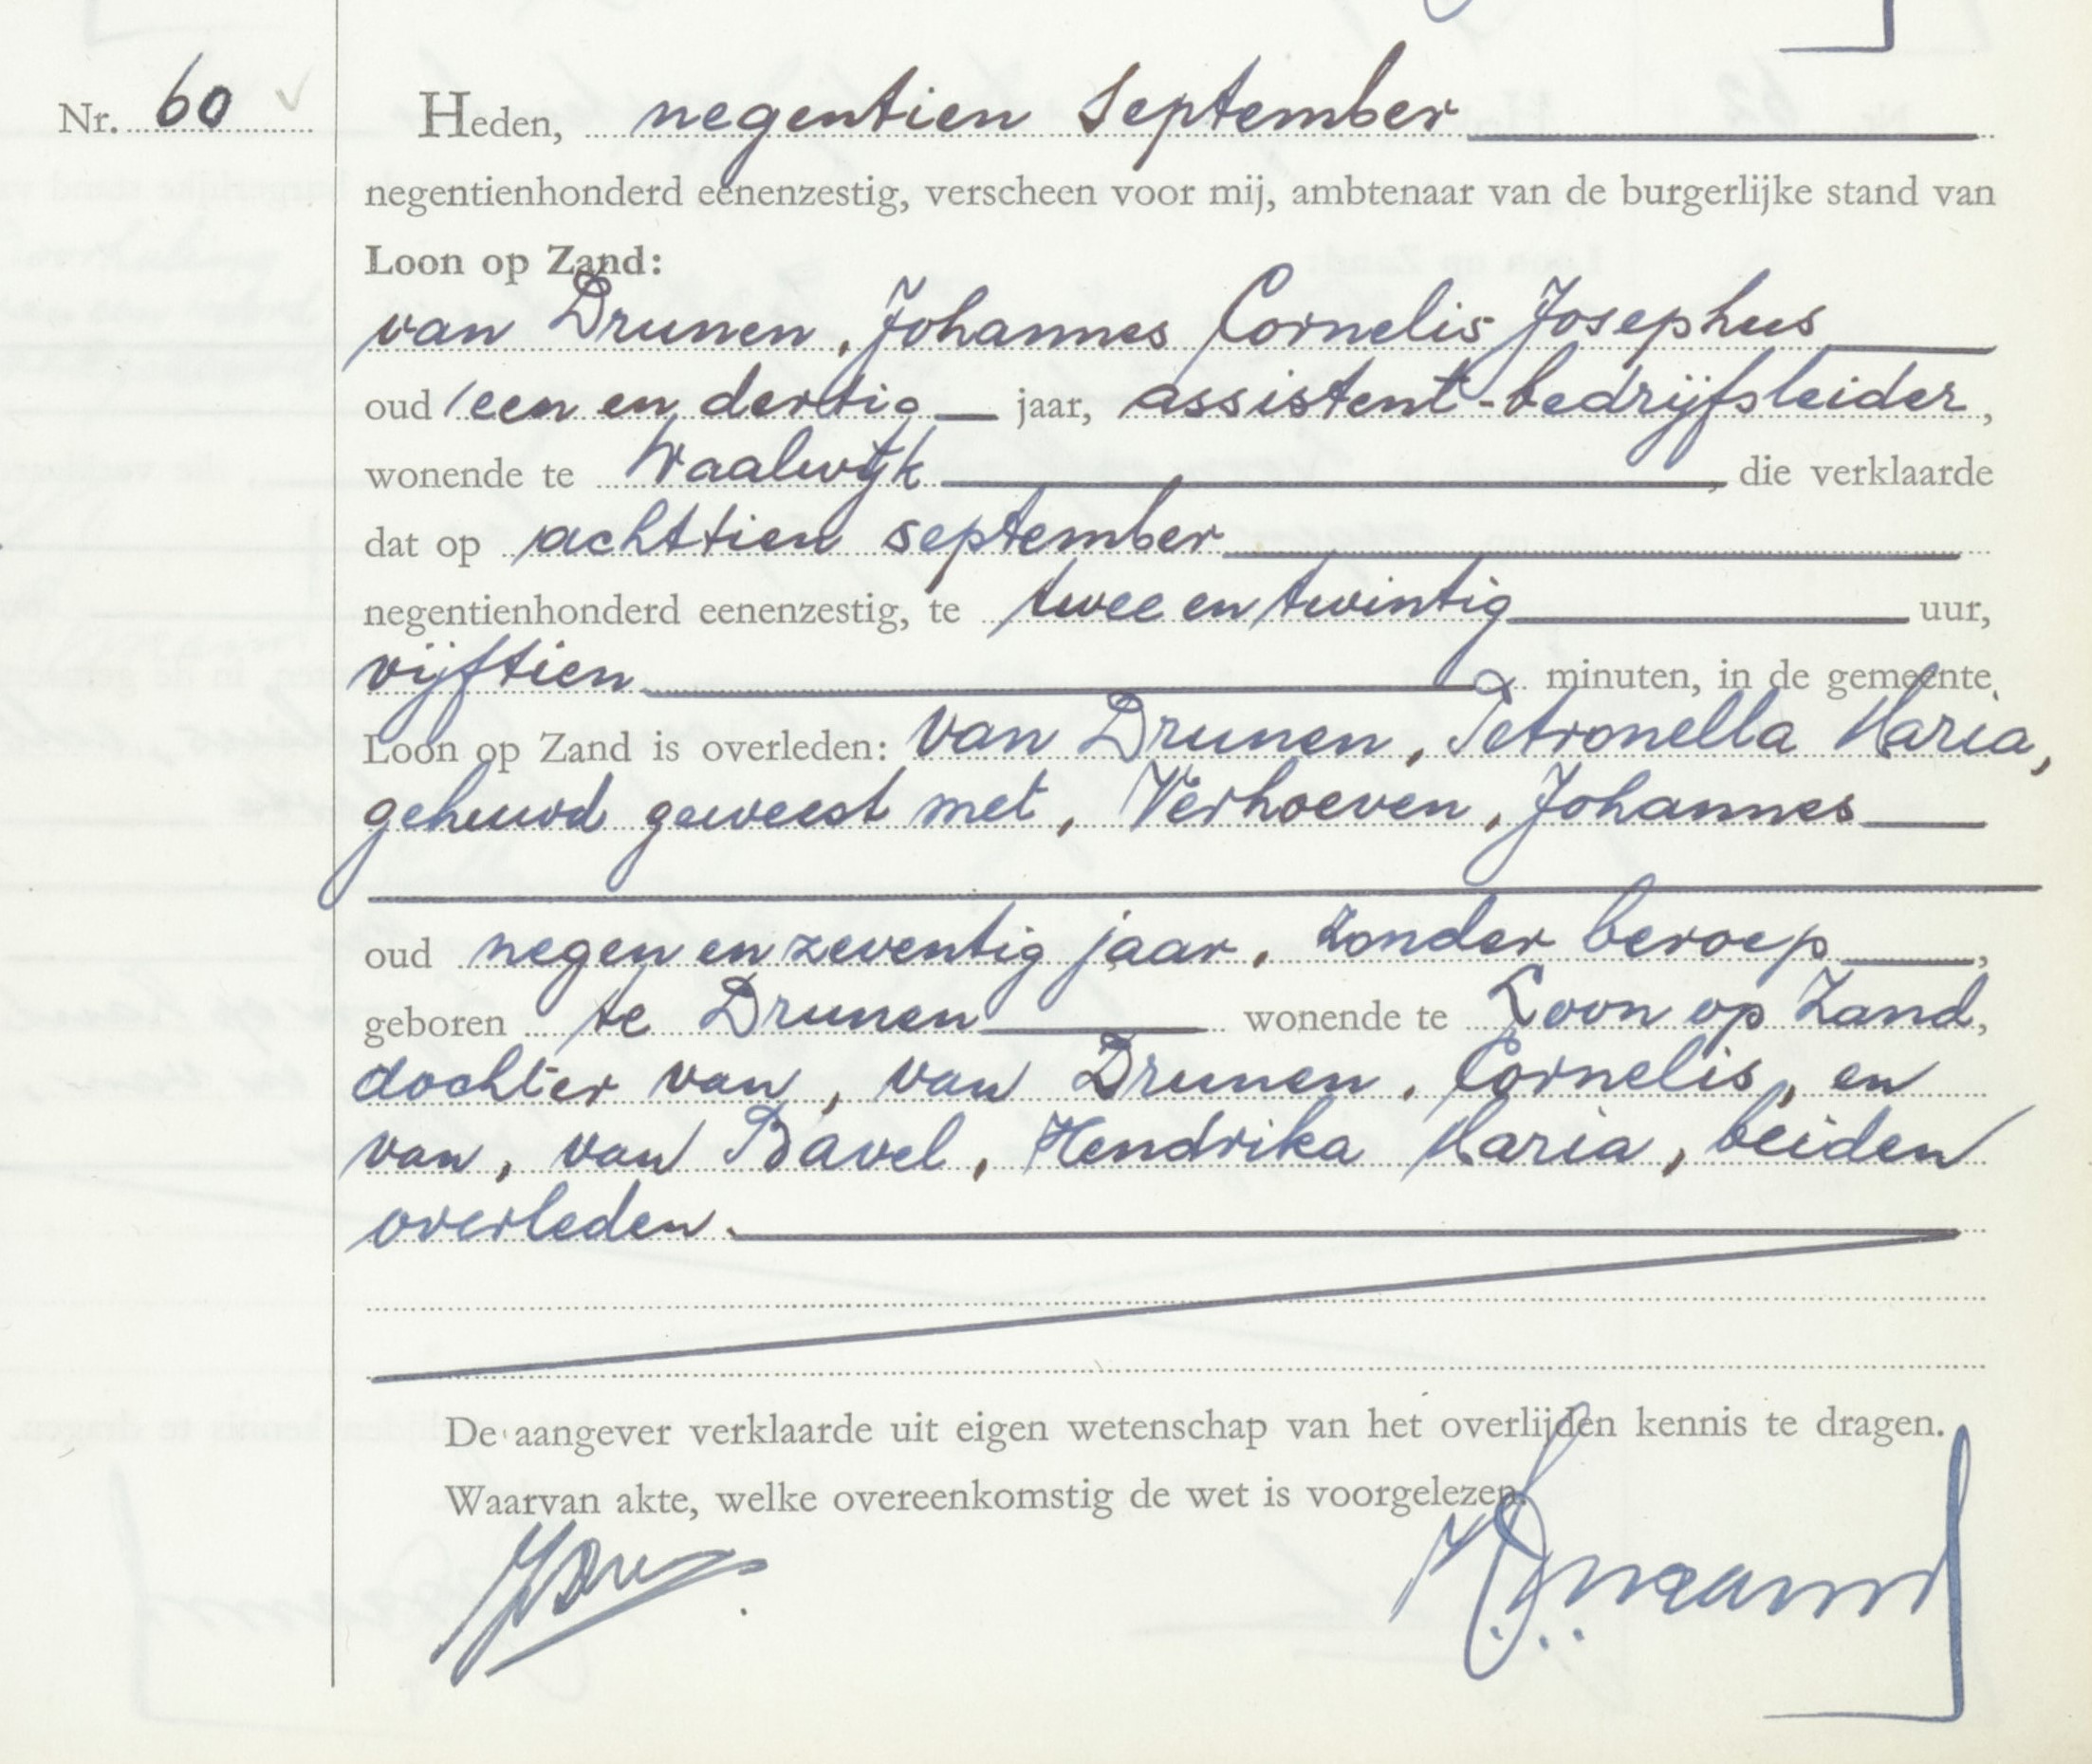 Nr. 60
Heden, negentien september
negentienhonderd eenenzestig, verscheen voor mij, ambtenaar van de burgerlijke stand van
Loon op Zand:
van Drunen, Johannes Cornelis Josephus
oud een en dertig jaar, assistent-bedrijfsleider,
wonende te Waalwijk, die verklaarde
dat op achttien september
negentienhonderd eenenzestig, te twee en twintig uur,
vijftien minuten, in de gemeente
Loon op Zand is overleden: van Drunen, Petronella Maria,
gehuwd geweest met, Verhoeven, Johannes
oud negen en zeventig jaar, zonder beroep,
geboren te Drunen wonende te Loon op Zand,
dochter van, van Drunen, Cornelis, en
van, van Bavel, Hendrika Maria, beiden
overleden.
De aangever verklaarde uit eigen wetenschap van het overlijden kennis te dragen.
Waarvan akte, welke overeenkomstig de wet is voorgelezen.